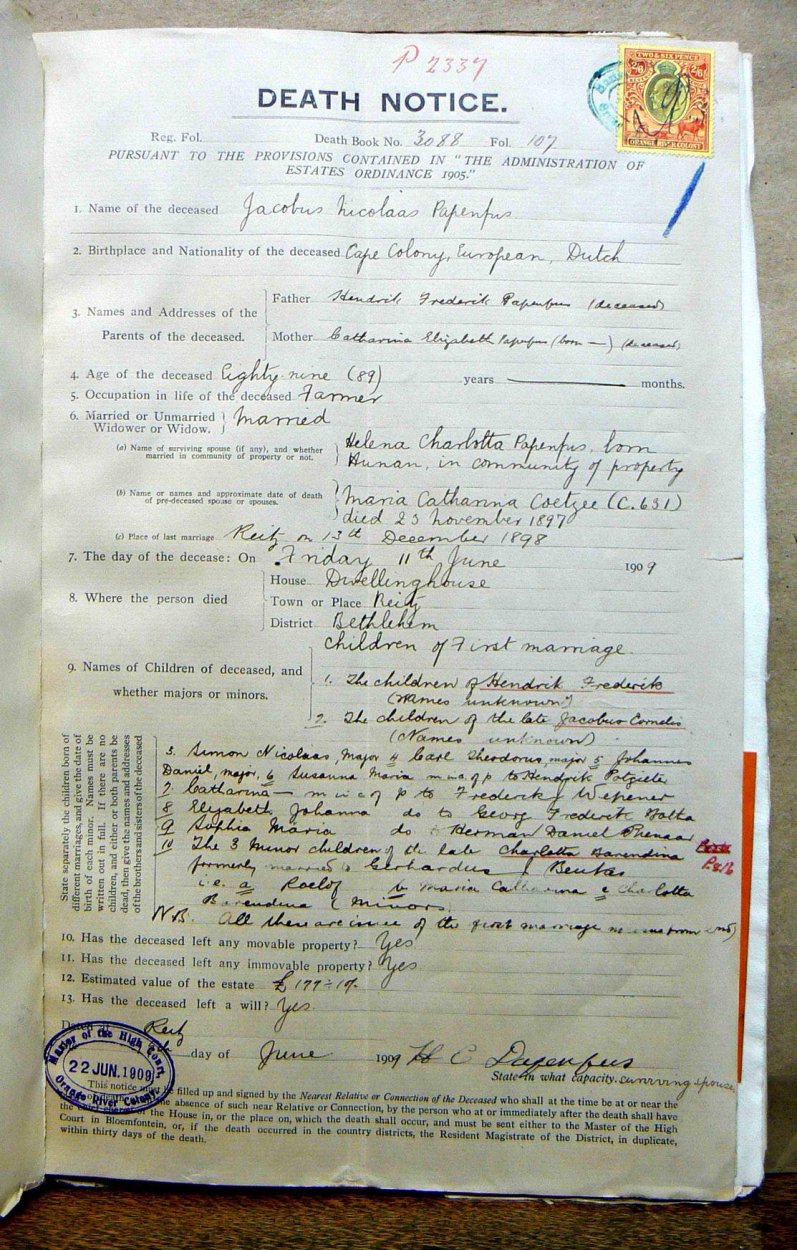 P 2337
TWO & SIX PENCE
2/6 2/6
ORANGE RIVER COLONY
DEATH NOTICE.
Reg. Fol. Death Book No. 3088 Fol. 107
PURSUANT TO THE PROVISIONS CONTAINED IN "THE ADMINISTRATION OF
ESTATES ORDINANCE 1905."
1. Name of the deceased Jacobus Nicolaas Papenfus
2. Birthplace and Nationality of the deceased Cape Colony, European, Dutch
3. Names and Addresses of the
Parents of the deceased.
Father Hendrik Frederik Papenfus (deceased)
Mother Catharina Elizabeth Papenfus (born —) (deceased)
4. Age of the deceased Eighty nine (89) years — months.
5. Occupation in life of the deceased Farmer
6. Married or Unmarried
Widower or Widow.
Married
(a) Name of surviving spouse (if any), and whether
married in community of property or not.
Helena Charlotta Papenfus, born
Human, in community of property
(b) Name or names and approximate date of death
of pre-deceased spouse or spouses.
Maria Catharina Coetzee (C.631)
died 23 November 1897
(c) Place of last marriage Reitz on 13th December 1898
7. The day of the decease: On Friday 11th June 1909
8. Where the person died
House Dwellinghouse
Town or Place Reitz
District Bethlehem
children of First marriage.
9. Names of Children of deceased, and
whether majors or minors.
1. The children of Hendrik Frederik
(names unknown)
2. The children of the late Jacobus Cornelis
(Names unknown)
State separately the children born of
different marriages, and give the date of
birth of each minor. Names must be
written out in full. If there are no
children, and either or both parents be
dead, then give the names and addresses
of the brothers and sisters of the deceased
3. Simon Nicolaas, Major 4 Carl Theodorus, major 5 Johannes
Daniel, major, 6 Susanna Maria m in c of p to Hendrik Potgieter
7 Catharina — m in c of p to Frederik J Wepener
8 Elizabeth Johanna do to Georg Frederik Botha
9 Sophia Maria do Herman Daniel
10 The 3 Minor children of the late Charlotta Barendina
formerly married to Gerhardus J Beukes
i.e. a Roelof b Maria Catharina c Charlotta
Barendina (Minors)
N.B. All these are issue of the first marriage
10. Has the deceased left any movable property? Yes
11. Has the deceased left any immovable property? Yes
12. Estimated value of the estate £177
13. Has the deceased left a will? Yes.
Dated at Reitz
day of June 1909 H C Papenfus
State in what capacity. surviving spouse
Master of the High Court,
22 JUN. 1909
Orange River Colony
This notice must be filled up and signed by the Nearest Relative or Connection of the Deceased who shall at the time be at or near the
absence of such near Relative or Connection, by the person who at or immediately after the death shall have
the House in, or the place on, which the death shall occur, and must be sent either to the Master of the High
Court in Bloemfontein, or, if the death occurred in the country districts, the Resident Magistrate of the District, in duplicate,
within thirty days of the death.